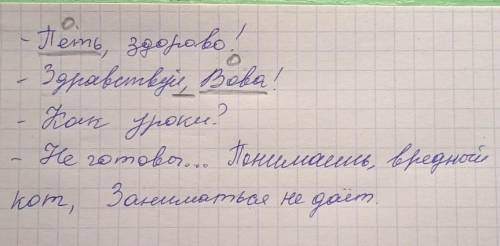 О О
- Петь, здорово!
- Здравствуй, Вова!
- Как уроки?
- Не готовы... Понимаешь, вредный
кот, Заниматься не даёт.